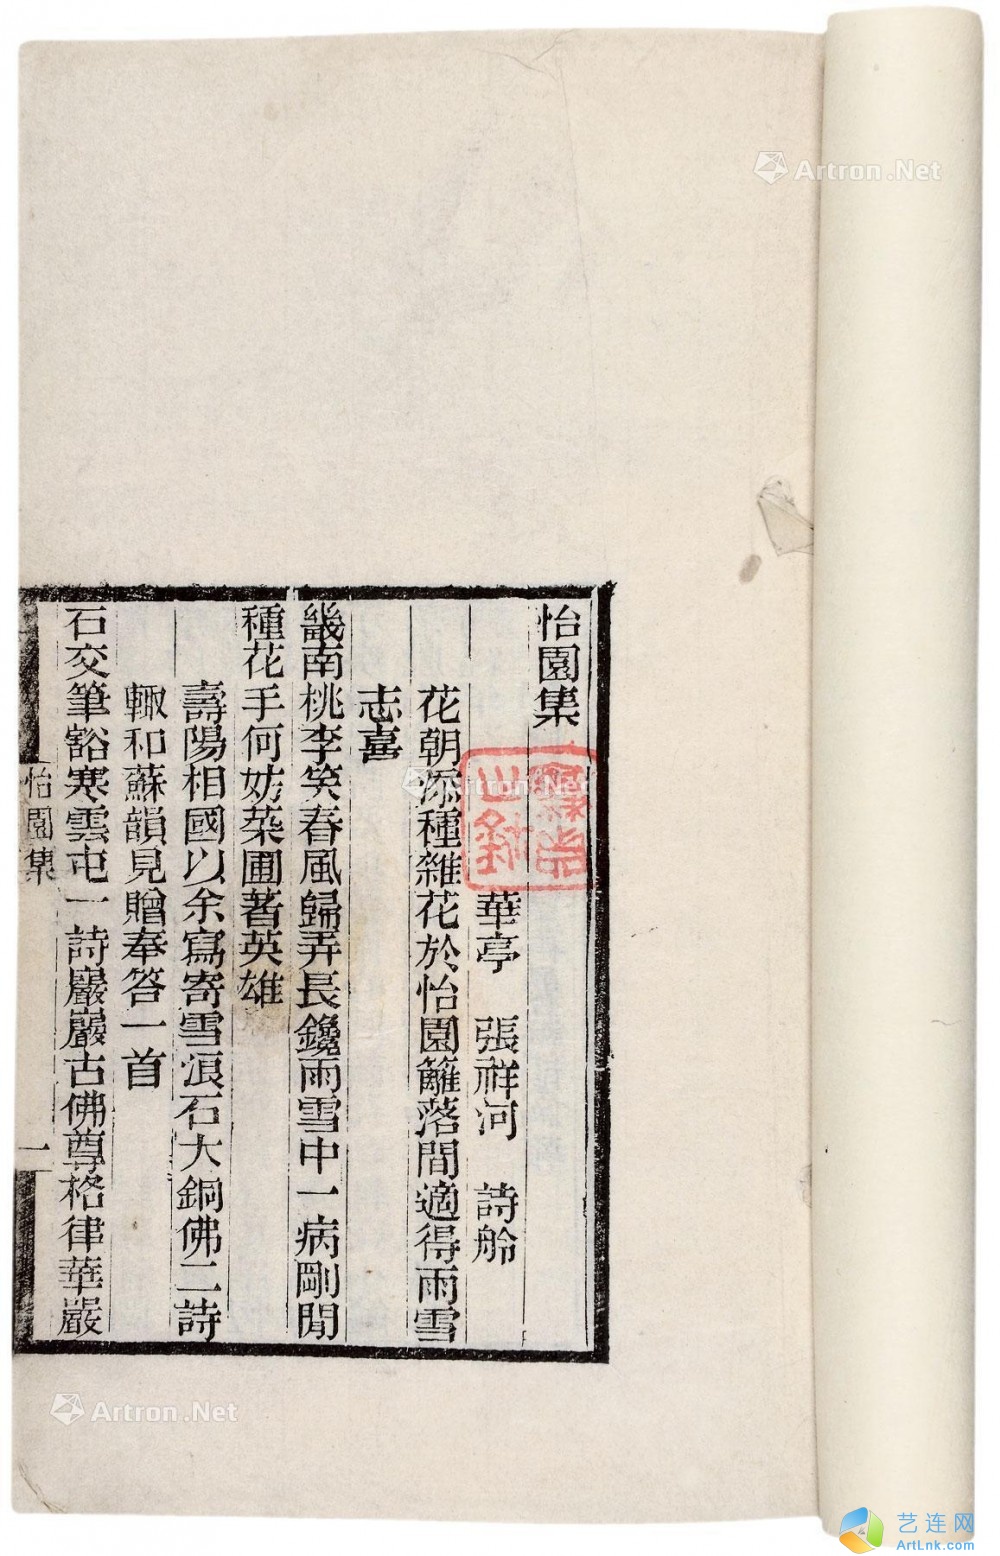 怡園集
華亭 張祥河 詩舲
花朝添種雜花於怡園籬落間適得雨雪
志喜
畿南桃李笑春風歸弄長鑱雨雪中一病剛閒
種花手何妨菜圃著英雄
壽陽相國以余寫寄雪浪石大銅佛二詩
輙和蘇韻見贈奉答一首
石交筆谿寒雲屯一詩巖巖古佛尊格律華嚴
怡園集
一
Artron.Net
Artron.Net
Artron.Net
艺连网
ArtLnk.com